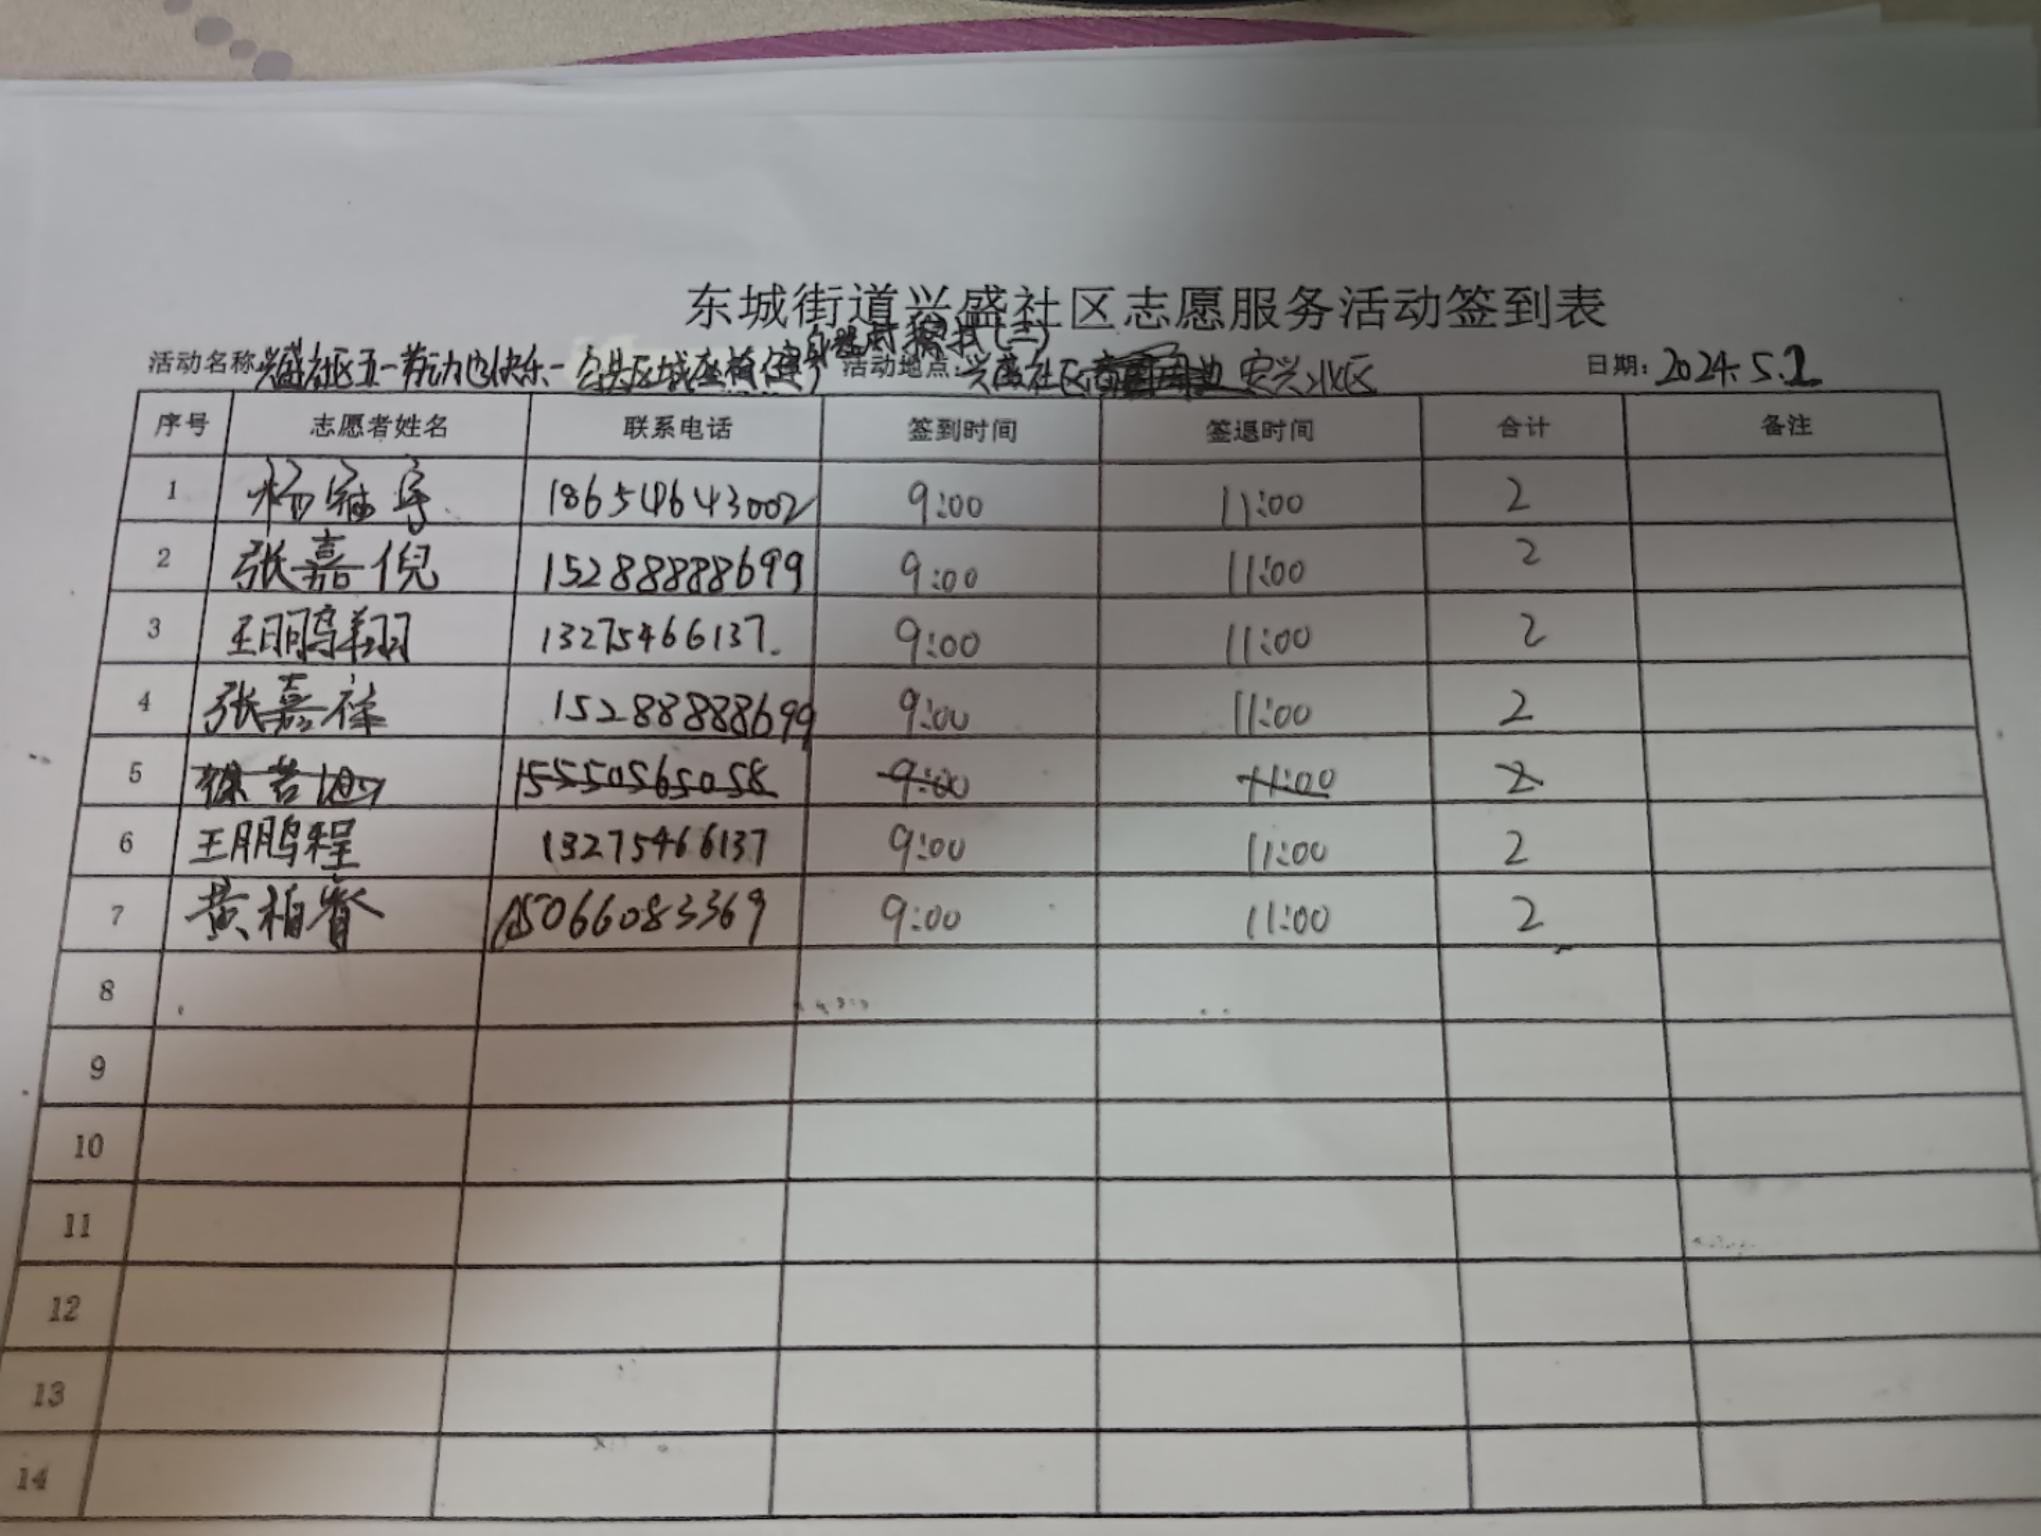 东城街道兴盛社区志愿服务活动签到表
活动名称:兴盛社区五一劳动也快乐-公共区域座椅健身器材擦拭(三) 活动地点:兴盛社区 安兴北区 日期:2024.5.2
序号 志愿者姓名 联系电话 签到时间 签退时间 合计 备注
1 杨 18654643002 9:00 11:00 2
2 张嘉倪 15288888699 9:00 11:00 2
3 王鹏翔 13275466137. 9:00 11:00 2
4 张嘉禄 15288888699 9:00 11:00 2
5 徐若 15550565058 9:00 11:00 2
6 王鹏程 13275466137 9:00 11:00 2
7 黄柏睿 15066083369 9:00 11:00 2
8
9
10
11
12
13
14